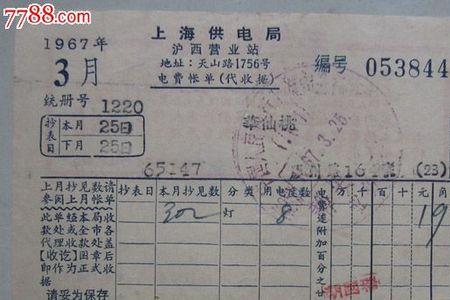 7788.com
1967年
3月
上海供电局
沪西营业站
地址：天山路1756号
电费帐单（代收据）
编号 053844
统册号 1220
抄表日 本月 25日
下月 25日
仙桃
65147
16
(23)
67.3.26
上月抄见数请参阅上月帐单
此单经本局收款处或全市各代理收款处盖【收讫】图章后即作为正式收据
请妥为保存
抄表日 本月抄见数 分类 用电度数 电费连附加百分之廿 千 百 十 元 角
302 灯 8 1 9